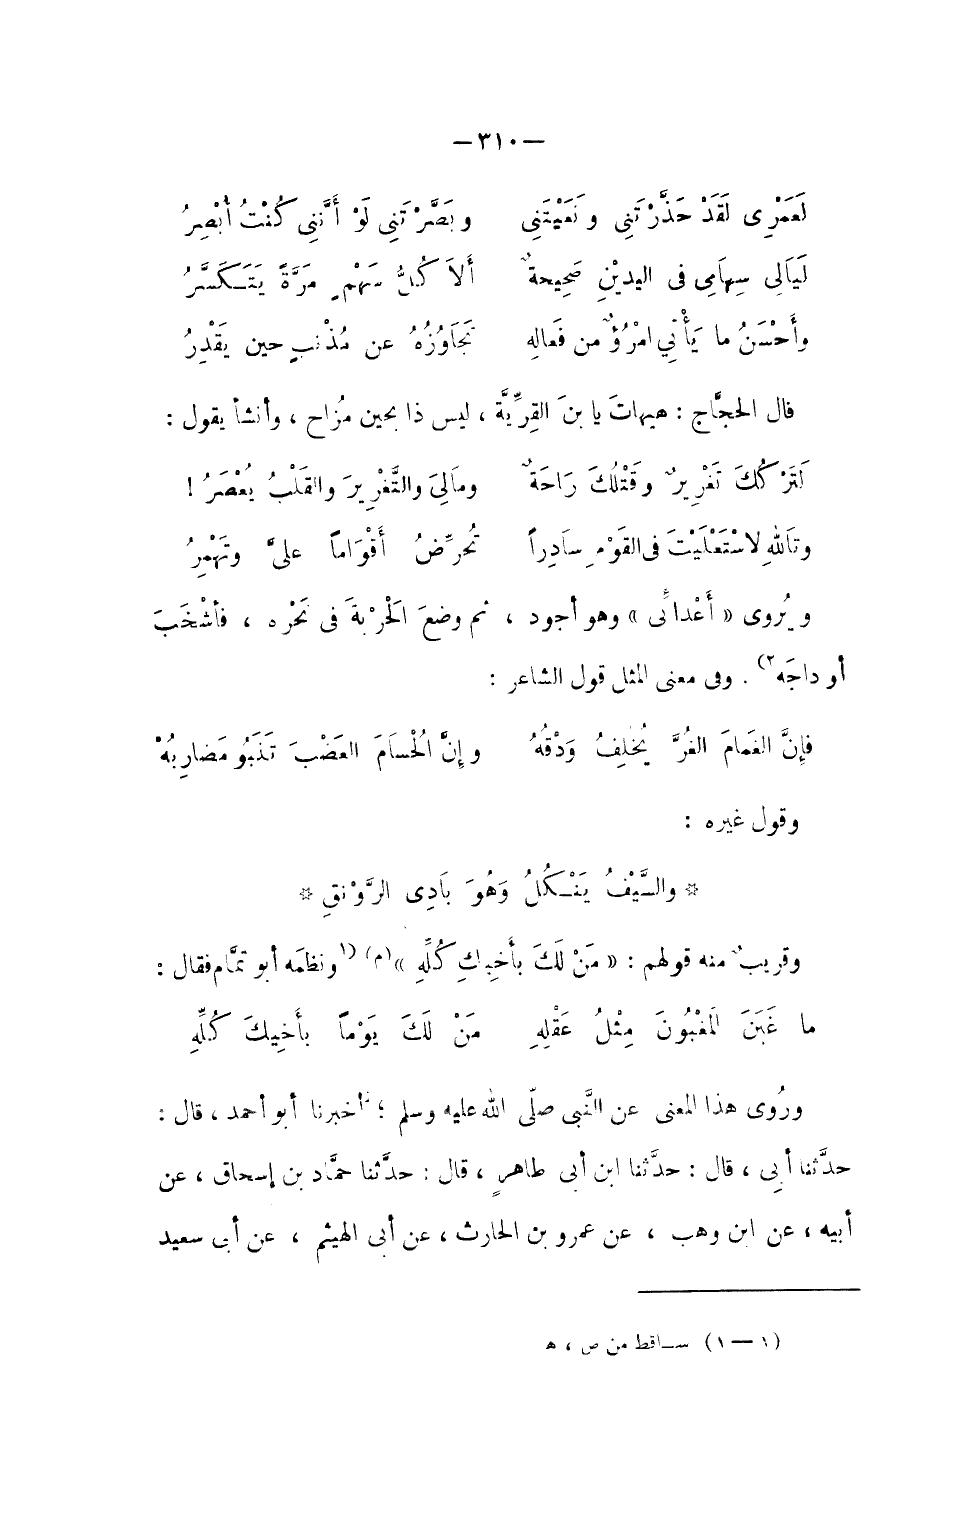 —٣١٠—
لَعَمْرِى لَقَدْ حَذَّرْتَنِى و نَعَيْتَنِى و بَصَّرْتَنِى لَوْ أَنَّنِى كُنْتُ أُبْصِرُ
لَيَالِى سِهَامِى فى اليديْنِ صَحِيحةٌ أَلاَ كُلُّ سَهْمٍ مَرَّةً يَتَـكَسَّرُ
وأَحْسَنُ ما يَأْتِي امْرُؤٌ من فَعالِهِ تَجَاوُزُهُ عن مُذْنبٍ حين يَقْدِرُ
قال الحجَّاج : هيهاتَ يا بنَ القِرِّيَّة ، ليس ذا بحين مُزاح ، وأنشأ يقول :
لَتَرْكُكَ تَغْرِيرٌ وقَتْلُكَ رَاحَةٌ ومَالِىَ والتَّغْرِيرَ والقَلْبُ يُعْصَرُ !
وتَاللهِ لاسْتَعْلَيْتَ فى القَوْمِ سادِراً تُحرِّضُ أَقْوَاماً علىَّ وتَهْمِرُ
و يُروى « أَعْدائى » وهو أجود ، ثم وضعَ الحَرْبةَ فى نَحْره ، فأشْخَبَ
أو داجَه٢) . وفى معنى المثل قول الشاعر :
فإنَّ الغَمامَ الغُرَّ يُخلِفُ وَدْقُهُ و إنَّ الُحْسَامَ العَضْبَ تَنْبُو مَضارِبُهْ
وقول غيره :
* والسَّيْفُ يَنْـكُلُ وَهُوَ بَادِى الرَّوْنقِ *
وقريبٌ منه قولهم : « مَنْ لَكَ بأَخِيكِ كُلِّهِ »(م) (١ونظمَه أبو تمَّام فقال :
ما غَبَنَ المَغْبُونَ مِثْلُ عَقْلِهِ مَنْ لَكَ يَوْماً بأَخِيكَ كُلِّهِ
ورُوى هذا المعنى عن النَّبى صلّى الله عليه وسلم ؛ أخبرنا أبو أحمد ، قال :
حدَّثنا أبِى ، قال : حدَّثنا ابن أبى طاهرٍ ، قال : حدَّثنا حمَّاد بن إسحاق ، عن
أبيه ، عن ابن وهب ، عن عمرو بن الحارث ، عن أبى الهيثم ، عن أبى سعيد
(١ — ١) ســاقط من ص ، ه